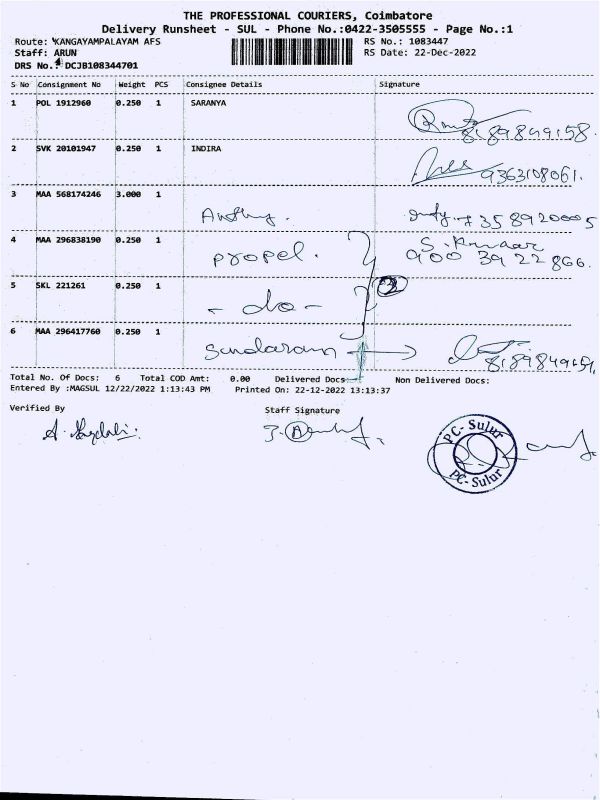 THE PROFESSIONAL COURIERS, Coimbatore
Delivery Runsheet - SUL - Phone No.:0422-3505555 - Page No.:1
Route: KANGAYAMPALAYAM AFS RS No.: 1083447
Staff: ARUN RS Date: 22-Dec-2022
DRS No.: DCJB108344701
S No Consignment No Weight PCS Consignee Details Signature
1 POL 1912960 0.250 1 SARANYA
8189849158.
2 SVK 20101947 0.250 1 INDIRA
9363108061.
3 MAA 568174246 3.000 1
4 MAA 296838190 0.250 1 propel. S.Kumaar
900 39 22 866.
5 SKL 221261 0.250 1 - do -
6 MAA 296417760 0.250 1 Sundaram
Total No. Of Docs: 6 Total COD Amt: 0.00 Delivered Docs: Non Delivered Docs:
Entered By :MAGSUL 12/22/2022 1:13:43 PM Printed On: 22-12-2022 13:13:37
Verified By Staff Signature
PC- Sulur
PC- Sulur